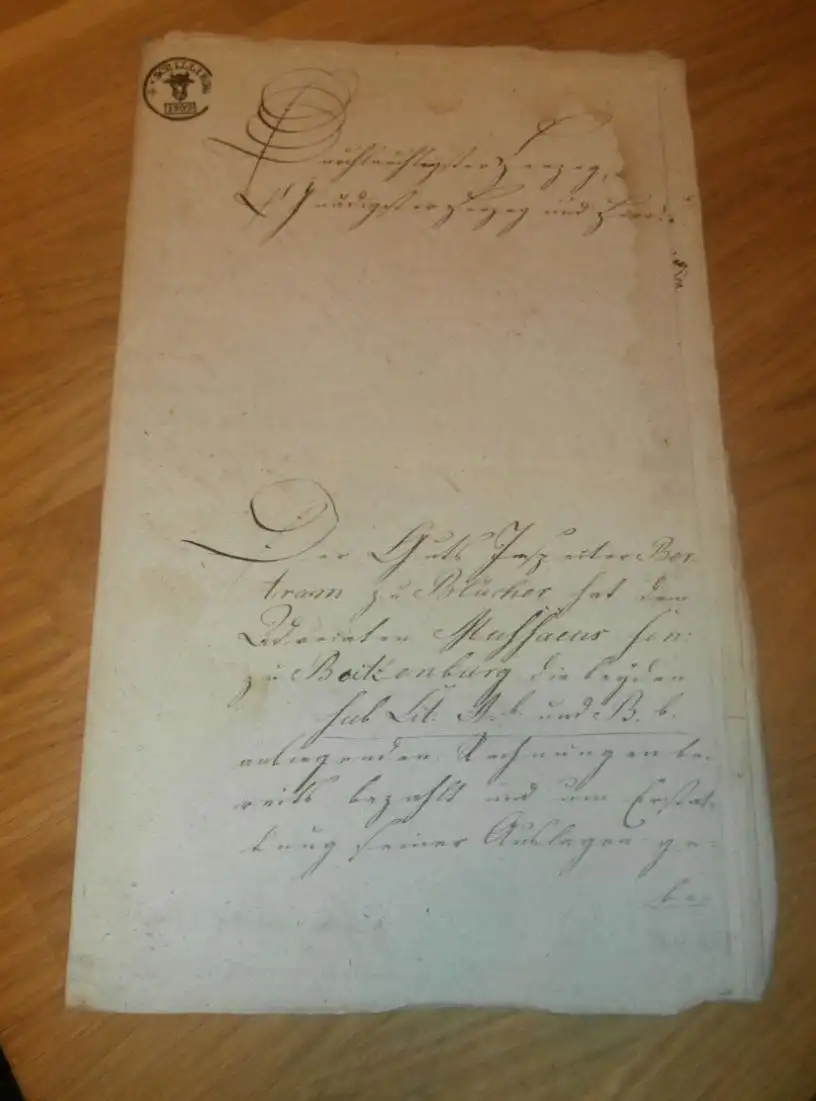 SCHILLING
1809
Durchlauchtigster Herzog,
Gnädigster Herzog und Herr!
Der Guts Inspector Ber-
tram zu Blücher hat dem
Advocaten Mussaeus sen:
zu Boitzenburg die beyden
sub Lit: A. b. und B. b.
anliegenden Rechnungen be-
reits bezahlt und um Erstat-
tung seiner Auslagen ge-
be-